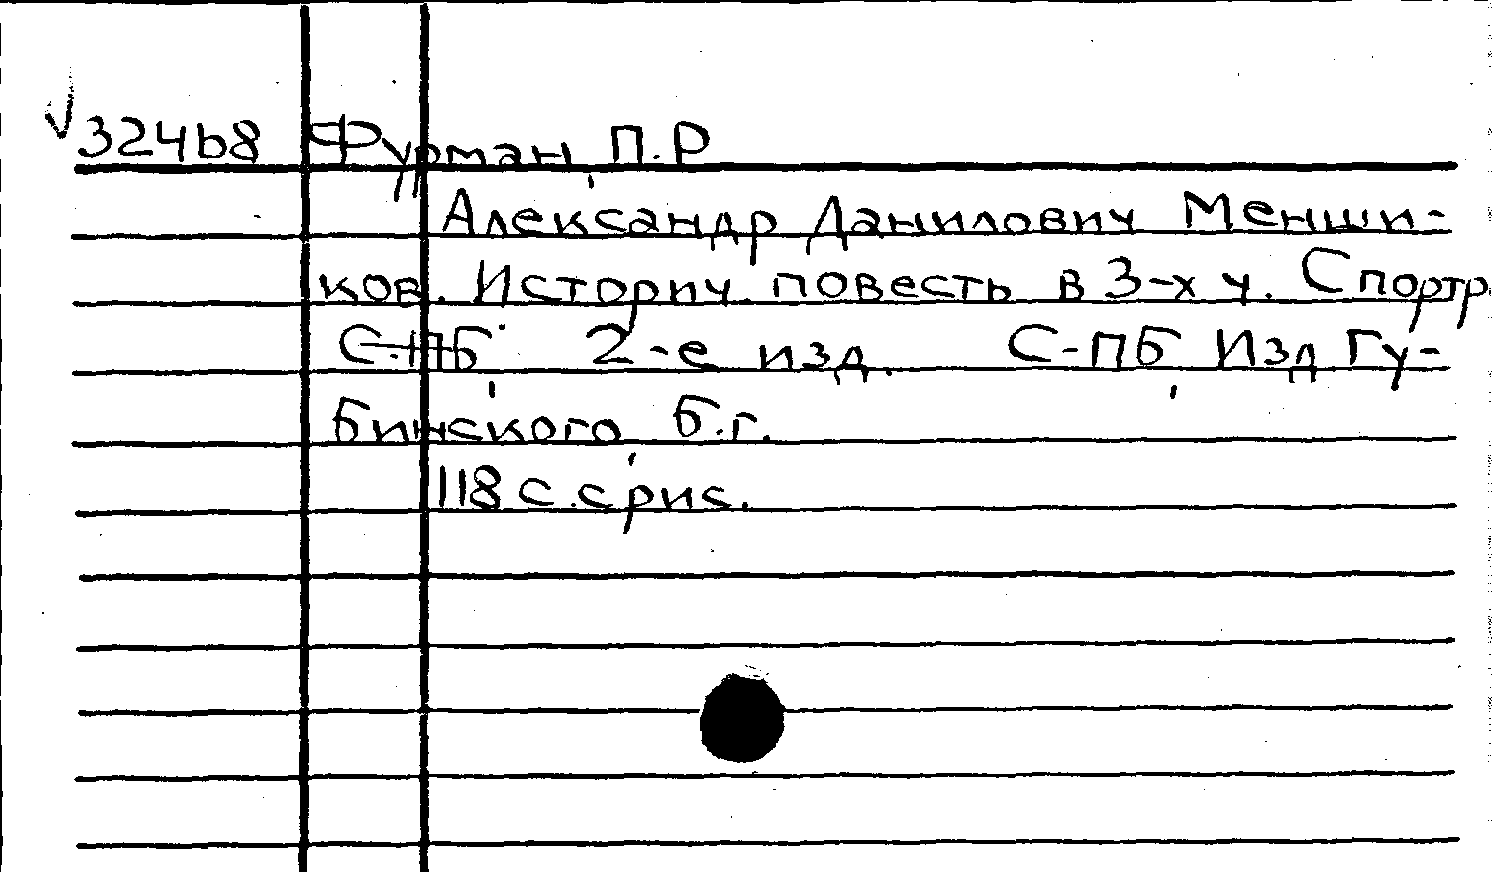 √32468 Фурман, П.Р
Александр Данилович Менши-
ков. Историч. повесть в 3-х ч. С портр
С-ПБ, 2-е изд. С-ПБ, Изд Гу-
бинского, б.г.
118 с. с рис.